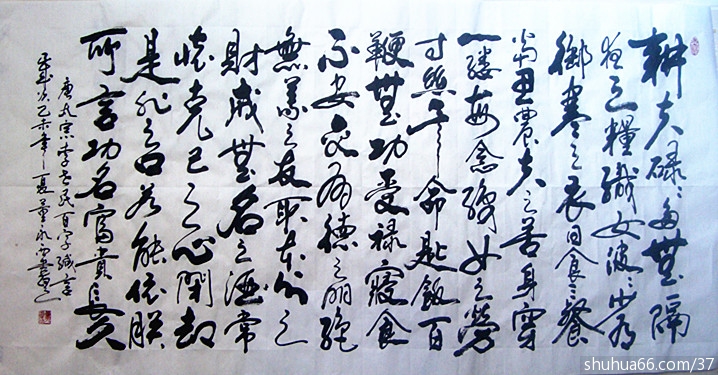 耕夫碌々多無隔
夜之糧織女波々少有
御寒之衣日食三餐
當思農夫之苦身穿
一縷每念織女之勞
寸絲千命匙飯百
鞭無功受祿寢食
不安交有德之朋絕
無義之友取本分之
財戒無名之酒常
懷克己之心閉却
是非之口若能依朕
所言功名富貴長久
唐太宗李世民百字箴言
歲次己未年夏董永
shuhua66.com/37